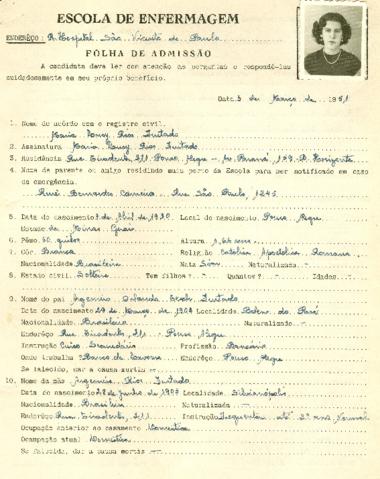 ESCOLA DE ENFERMAGEM
ENDERÊÇO: R. Hospital São Vicente de Paula
FOLHA DE ADMISSÃO
A candidata deve ler com atenção as perguntas e respondê-las
cuidadosamente em seu próprio benefício.
Data 3 de Março de 1951
1. Nome de acordo com o registro civil.
Maria Rios Furtado
2. Assinatura Maria Rios Furtado
3. Residência Rua Tiradentes, 211 Pouso Alegre - Av. Paraná, B. Horizonte
4. Nome de parente ou amigo residindo mais perto da Escola para ser notificado em caso
de emergência.
Bernardes Rua São Paulo, 1245
5. Data do nascimento Abril de Local do nascimento Pouso Alegre
Estado de Minas Gerais
6. Pêso 60 quilos Altura
7. Côr Branca Religião Católica Apostólica Romana
Nacionalidade Brasileira Nata Sim Naturalizada
8. Estado civil Solteira Tem filhos? Quantos? Idades
9. Nome do pai Furtado
Data do nascimento de Março de Localidade Belém do Pará
Nacionalidade Brasileira Naturalizado
Enderêço Rua Tiradentes, 211 Pouso Alegre
Instrução Curso Profissão Bancário
Onde trabalha? Banco da Lavoura Enderêço Pouso Alegre
Se falecido, dar a causa mortis
10. Nome da mãe Rios Furtado
Data do nascimento de Junho de Localidade Silvianópolis
Nacionalidade Brasileira Naturalizada
Enderêço Rua Tiradentes, 211 Instrução até 2º ano Normal
Ocupação anterior ao casamento Doméstica
Ocupação atual Doméstica
Se falecida, dar a causa mortis